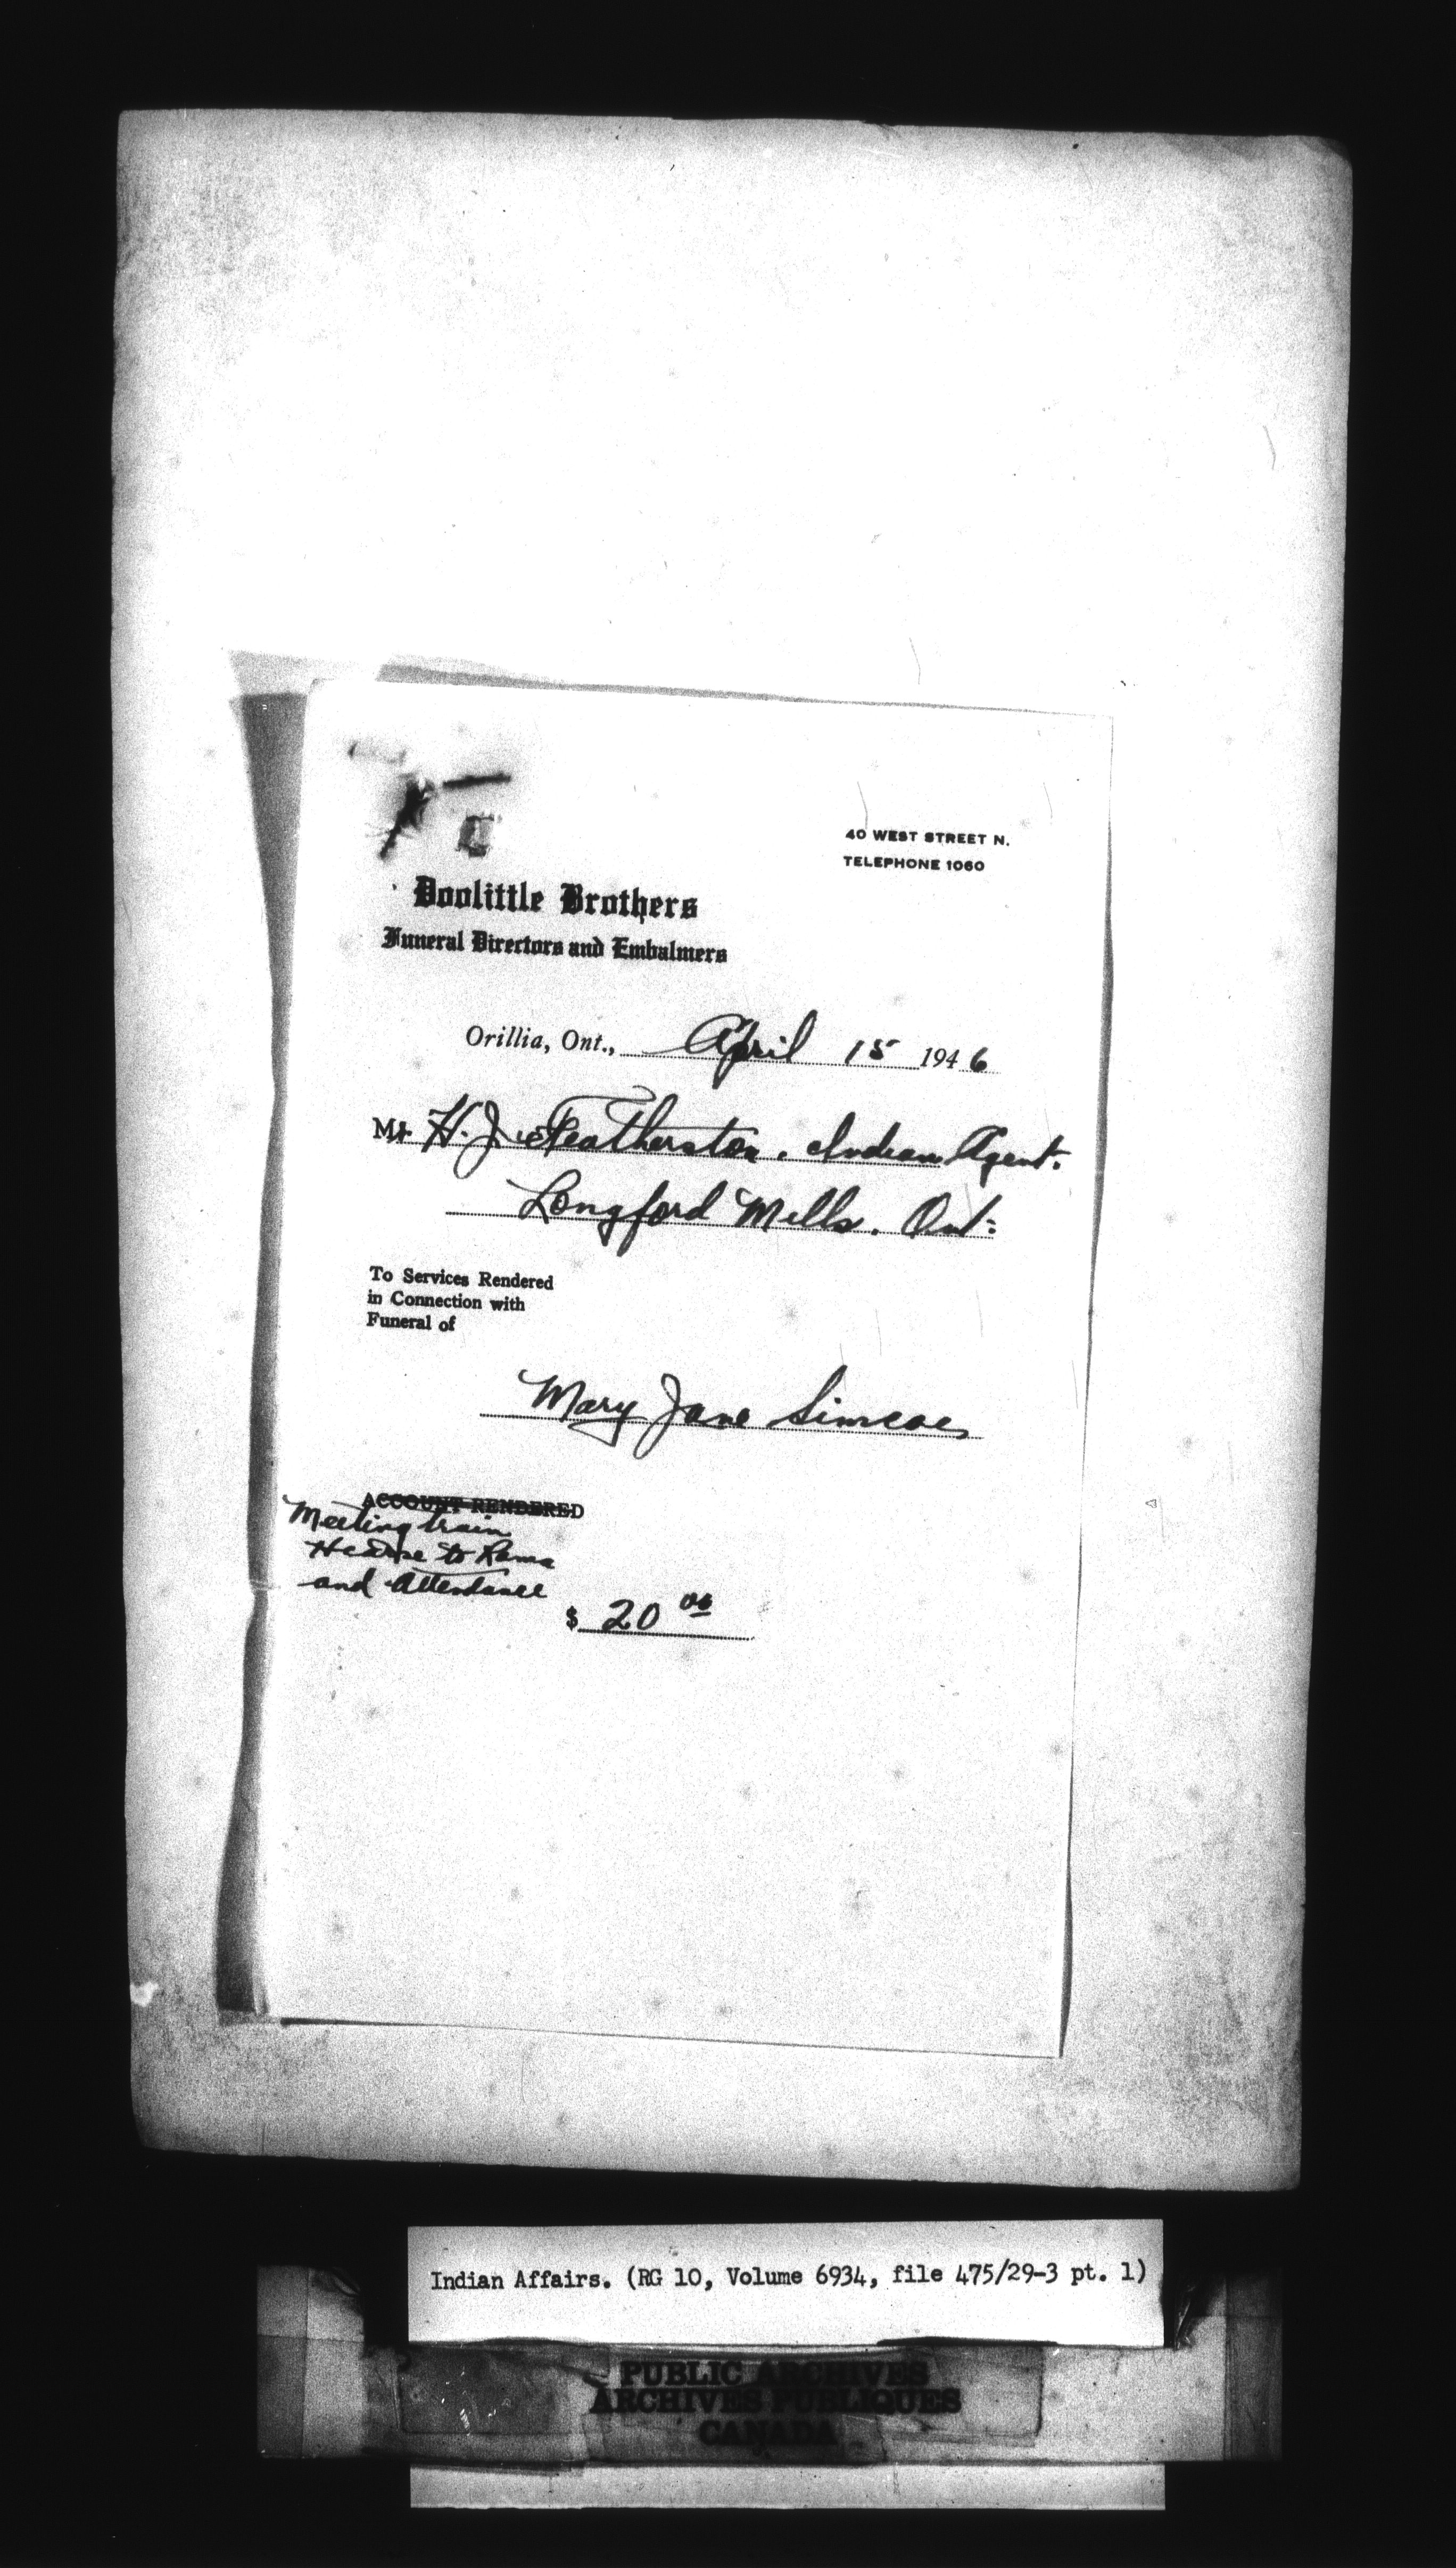 40 WEST STREET N.
TELEPHONE 1060
Doolittle Brothers
Funeral Directors and Embalmers
Orillia, Ont., April 15 1946
Mr H. J. Featherston. Indian Agent.
Longford Mills. Ont:
To Services Rendered
in Connection with
Funeral of
Mary Jane Simcoe
ACCOUNT RENDERED
Meeting train
Hearse to Rama
and Attendance
$ 20 00
Indian Affairs. (RG 10, Volume 6934, file 475/29-3 pt. 1)
PUBLIC ARCHIVES
ARCHIVES PUBLIQUES
CANADA